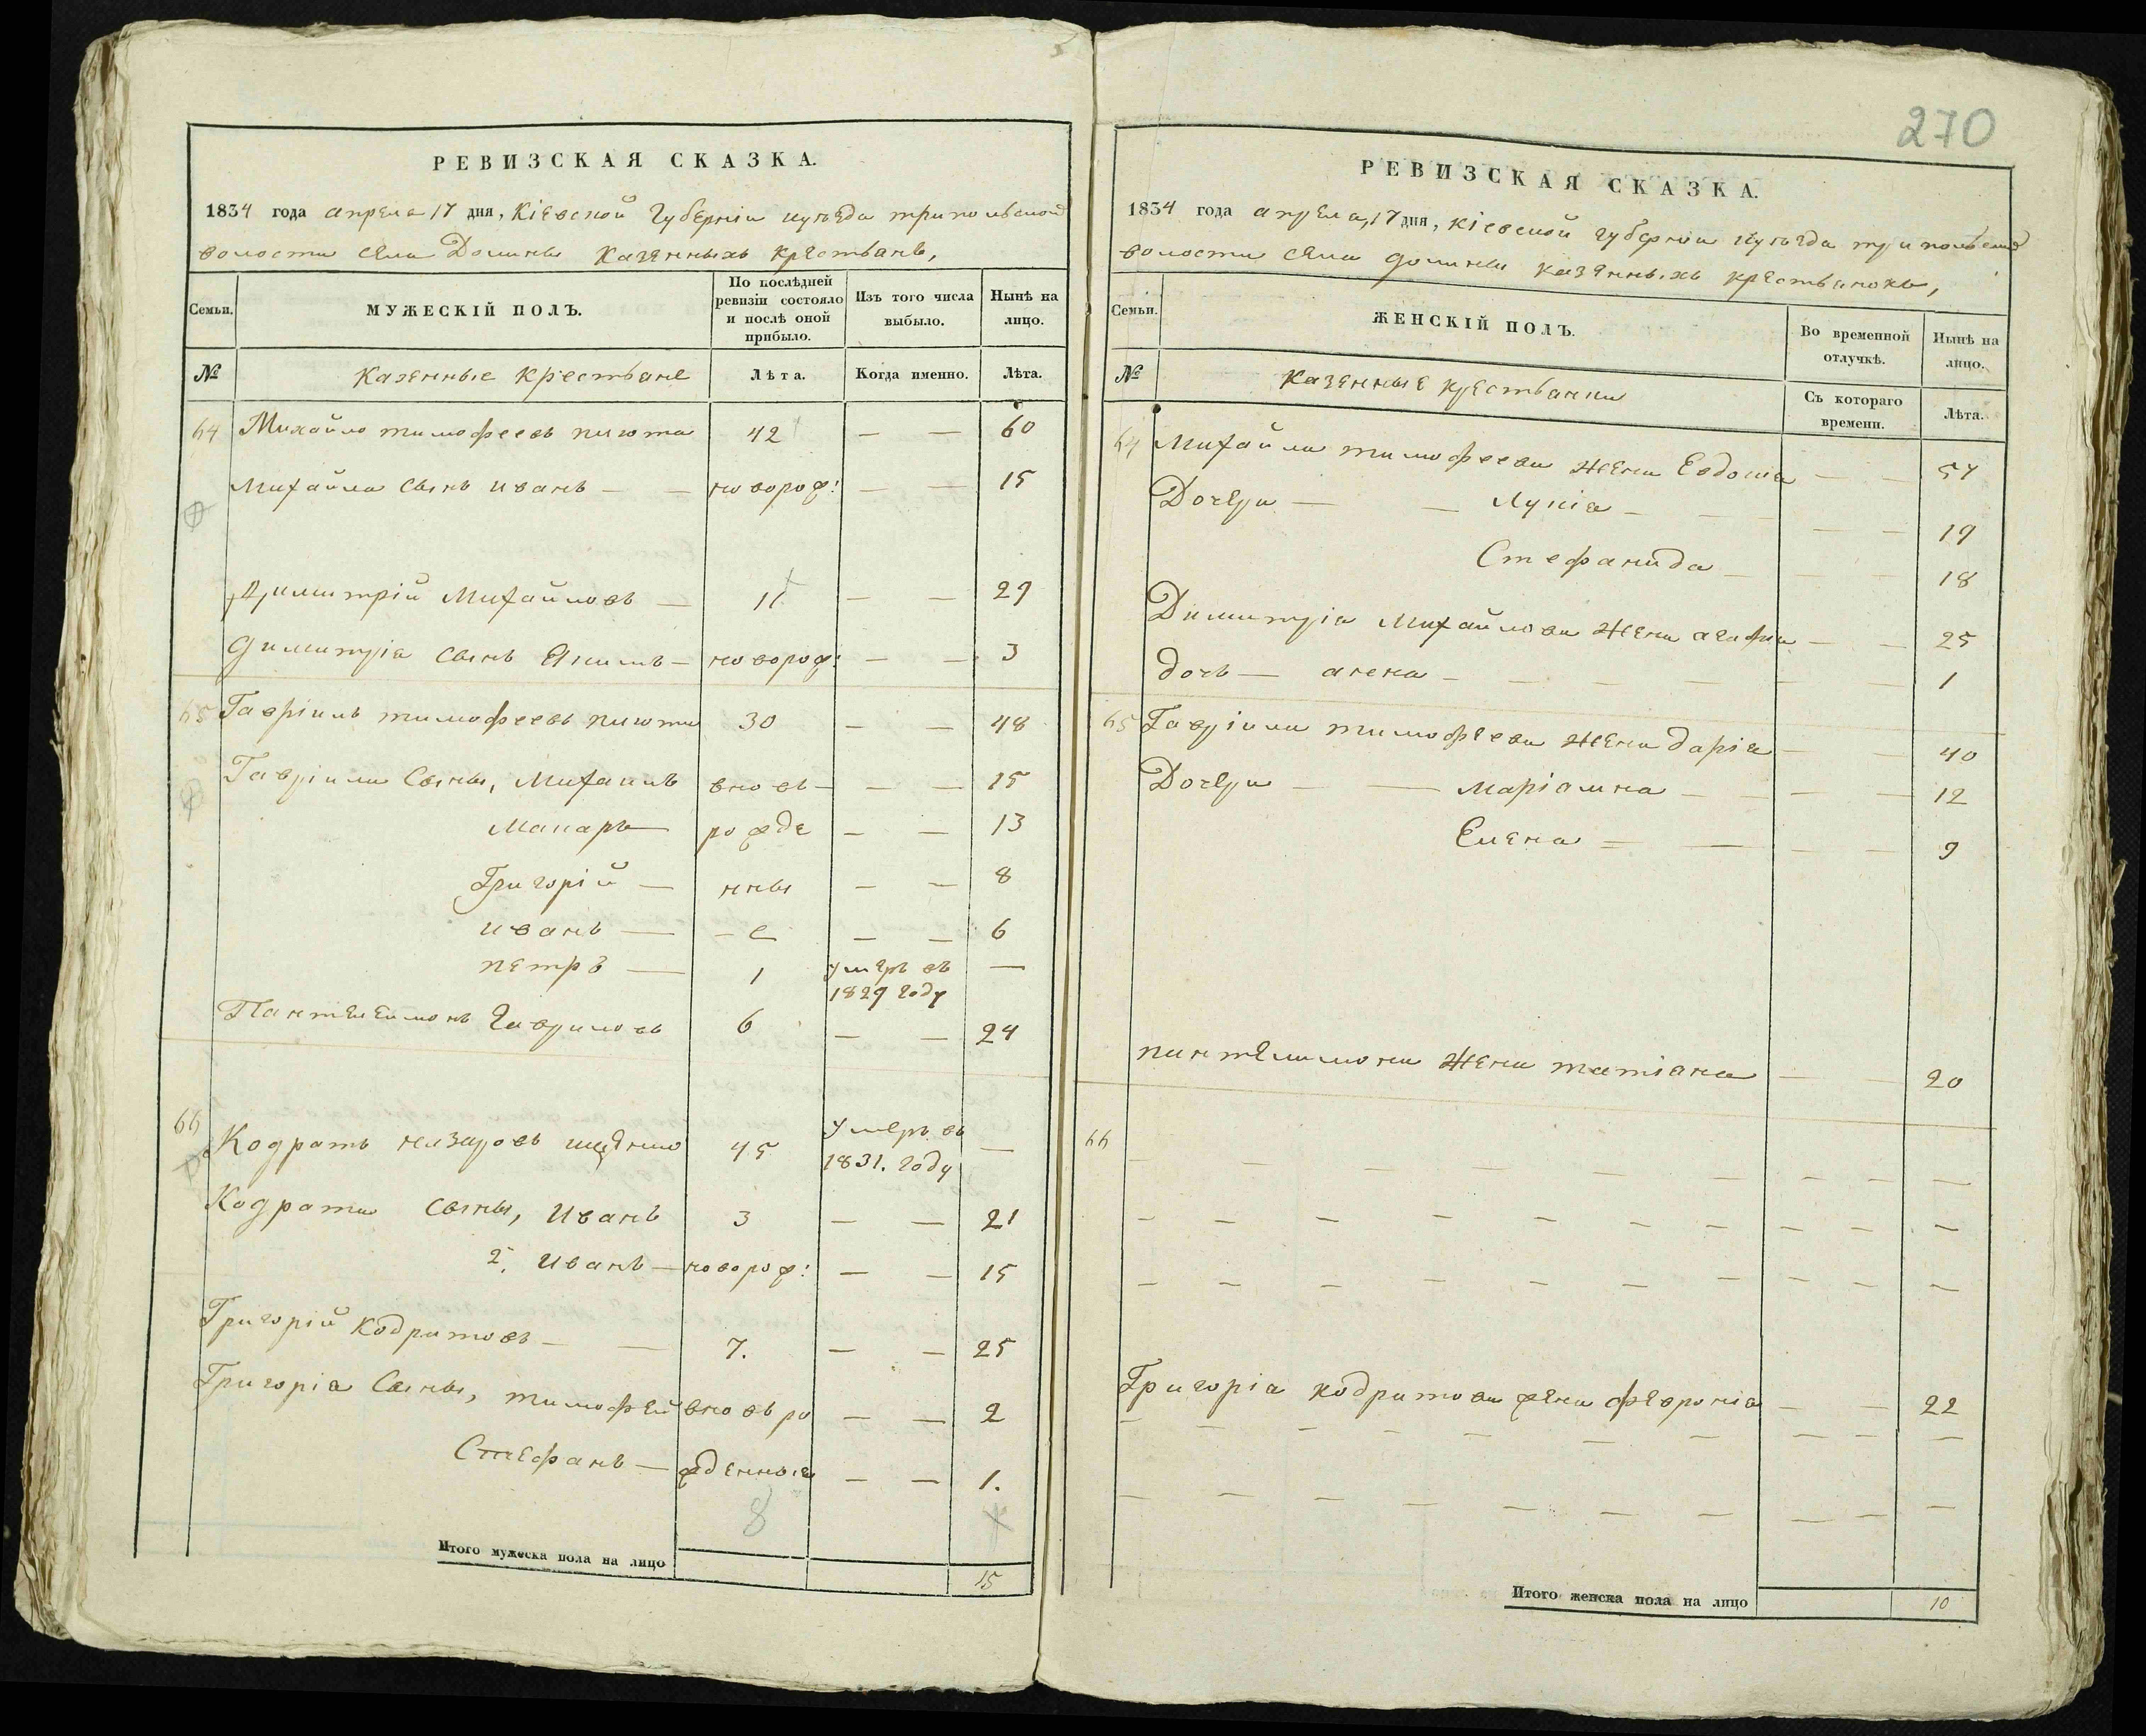 РЕВИЗСКАЯ СКАЗКА.
1834 года апреля 17 дня, Кіевской Губерніи и уѣзда трипольской
волости села Долины Казенныхъ крестьянъ,
Семьи. МУЖЕСКІЙ ПОЛЪ. По послѣдней ревизіи состояло и послѣ оной прибыло. Изъ того числа выбыло. Нынѣ на лицо.
№ Казенные крестьяне Лѣта. Когда именно. Лѣта.
64 Михайло тимофеевъ 42 — — 60
Михайла сынъ иванъ — — новорож: — — 15
Димитрій Михайловъ — 11 — — 29
Димитрія сынъ Якимъ — новорож: — — 3
65 Гавріилъ тимофеевъ 30 — — 48
Гавріила Сыны, Михаилъ вновь — — — 15
Макаръ — рожде — — 13
Григорій — нны — — 8
иванъ — — е — — 6
петръ — 1 умеръ въ 1829 году —
Пантелеимонъ Гавриловъ 6 — — 24
66 Кодратъ назаровъ 45 умеръ въ 1831. году —
Кодрата сыны, Иванъ 3 — — 21
2. Иванъ — новорож: — — 15
Григорій Кодратовъ — — 7. — — 25
Григорія Сыны, тимофей вновь ро — — 2
Стефанъ — жденные — — 1.
8
Итого мужеска пола на лицо 15
270
РЕВИЗСКАЯ СКАЗКА.
1834 года апреля, 17 дня, кіевской губерніи и уѣзда трипольской
волости села долины казенныхъ крестьянокъ,
Семьи. ЖЕНСКІЙ ПОЛЪ. Во временной отлучкѣ. Нынѣ на лицо.
№ казенные крестьянки Съ котораго времени. Лѣта.
64 Михайла тимофеева жена Евдокія — — 54
Дочери — — Лукія — — — 19
Стефанида — — — 18
Димитрія Михайлова жена агафія — — 25
дочь — алена — — — — — 1
65 Гавріила тимофеева жена дарія — — 40
Дочери — — Маріамна — — — — 12
Елена — — — — 9
пантелимона жена татіана — — 20
66 — — — — — — — — — —
— — — — — — — — — —
— — — — — — — — — —
Григорія кодратова жена февронія — — 22
— — — — — — — — — —
— — — — — — — — — —
Итого женска пола на лицо 10